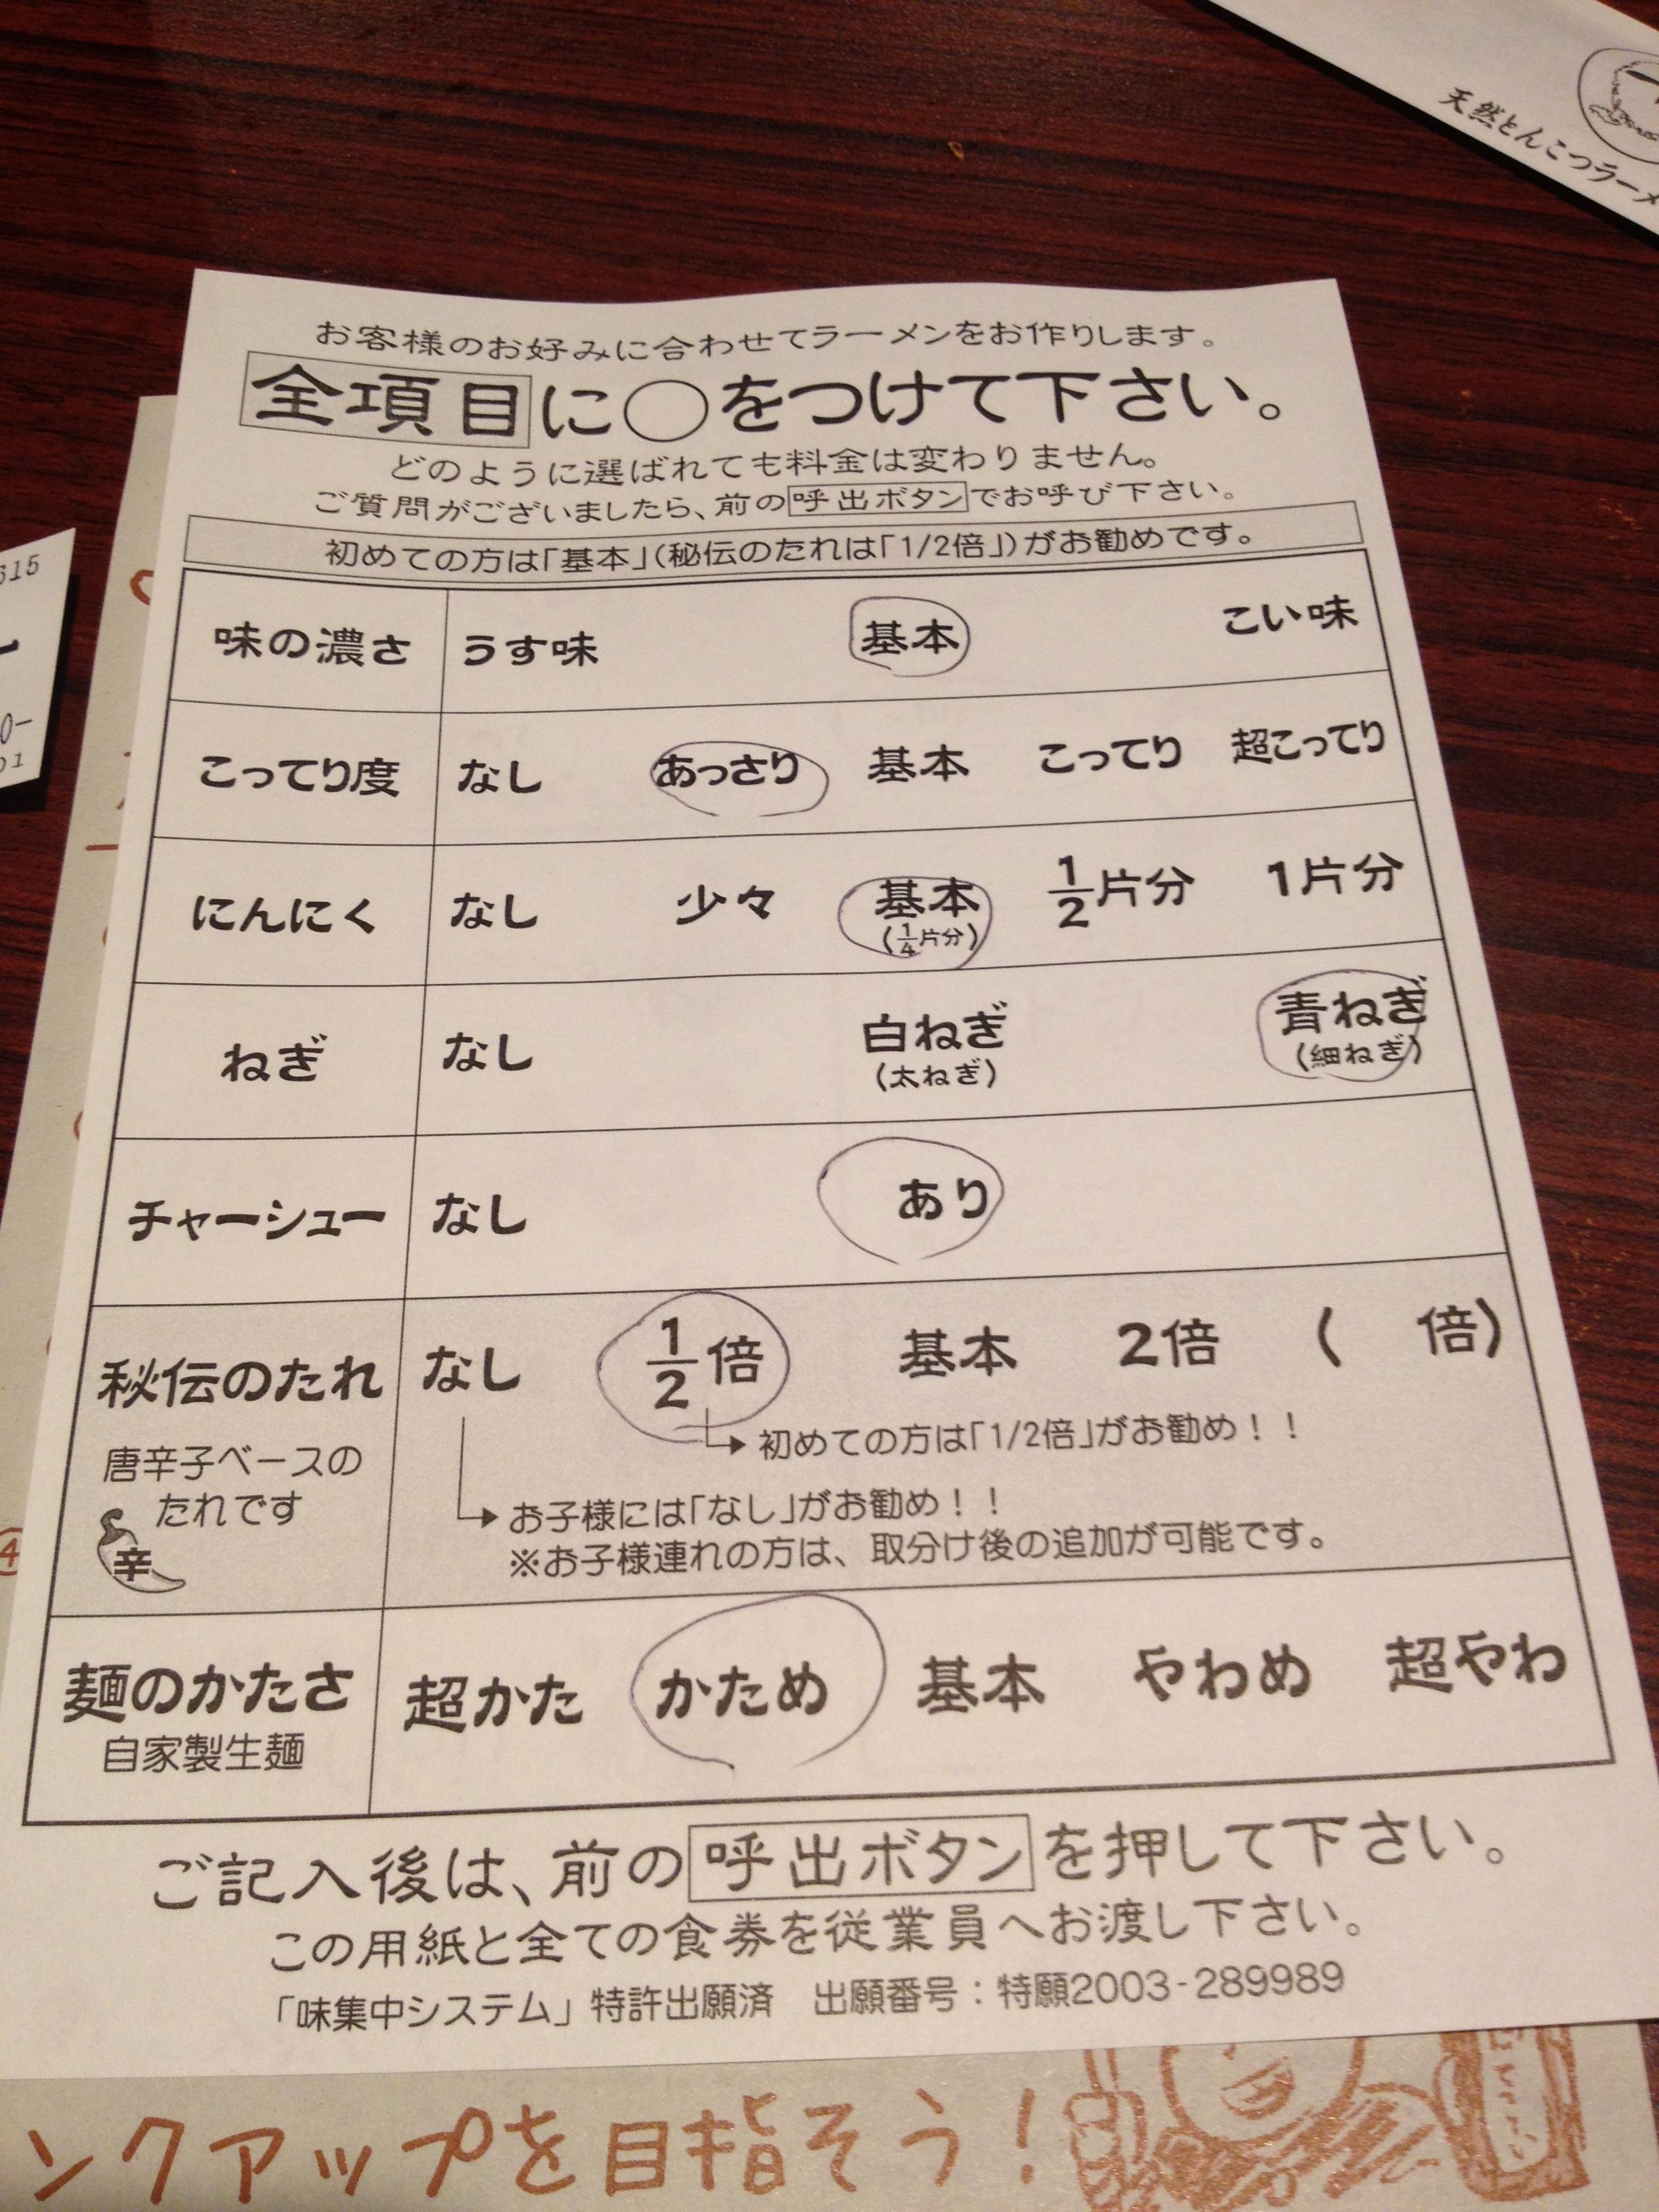 天然とんこつラーメ
615
お客様のお好みに合わせてラーメンをお作りします。
全項目に○をつけて下さい。
どのように選ばれても料金は変わりません。
ご質問がございましたら、前の呼出ボタンでお呼び下さい。
初めての方は「基本」(秘伝のたれは「1/2倍」)がお勧めです。
味の濃さ うす味 基本 こい味
こってり度 なし あっさり 基本 こってり 超こってり
にんにく なし 少々 基本 1/2片分 1片分
(1/4片分)
ねぎ なし 白ねぎ 青ねぎ
(太ねぎ) (細ねぎ)
チャーシュー なし あり
秘伝のたれ なし 1/2倍 基本 2倍 ( 倍)
初めての方は「1/2倍」がお勧め!!
唐辛子ベースの
たれです
辛
お子様には「なし」がお勧め!!
※お子様連れの方は、取分け後の追加が可能です。
麺のかたさ 超かた かため 基本 やわめ 超やわ
自家製生麺
ご記入後は、前の呼出ボタンを押して下さい。
この用紙と全ての食券を従業員へお渡し下さい。
「味集中システム」特許出願済 出願番号:特願2003-289989
ンクアップを目指そう!